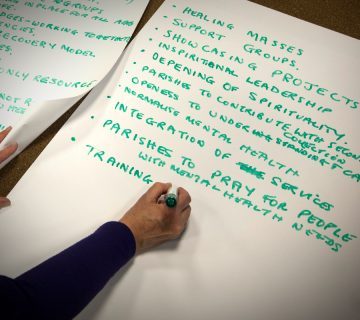 GROUPS.
IN PLACE FOR ALL
ENCIES.
WORKING TOGETHER
RECOVERY MODEL
ONLY RESOURCE
HEALING MASSES
SUPPORT GROUPS.
SHOWCASING PROJECTS
INSPIRITIONAL LEADERSHIP
DEPENING OF SPIRITUALITY.
PARISHES TO CONTRIBUTE WITH SEC
COLLECTION
OPENESS TO UNDERSTANDING
NORMALISE MENTAL HEALTH
INTEGRATION OF SERVICES
PARISHES TO PRAY FOR PEOPLE
WITH MENTAL HEALTH NEEDS
TRAINING